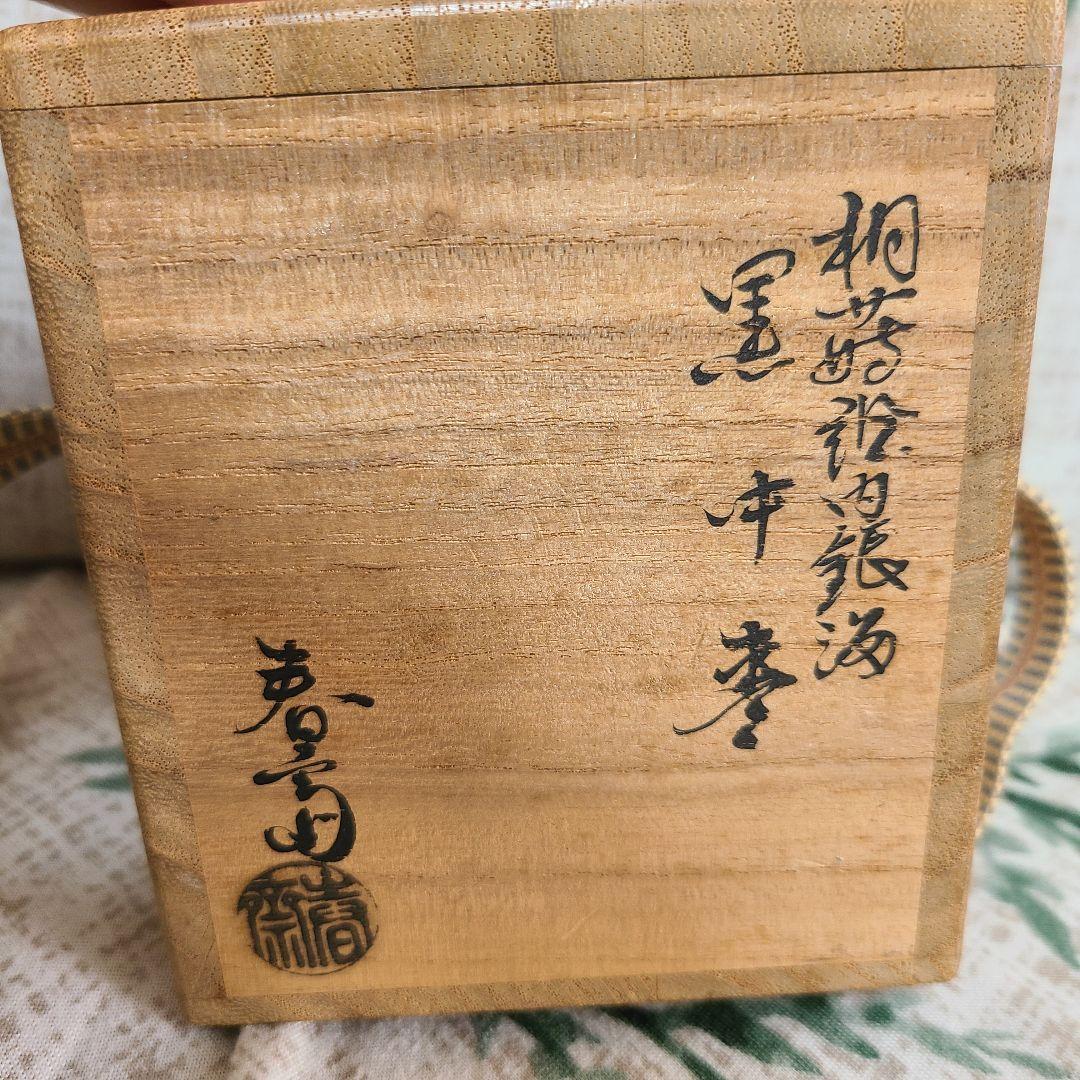 桐蒔絵内銀
黒中棗
春斎
春齋